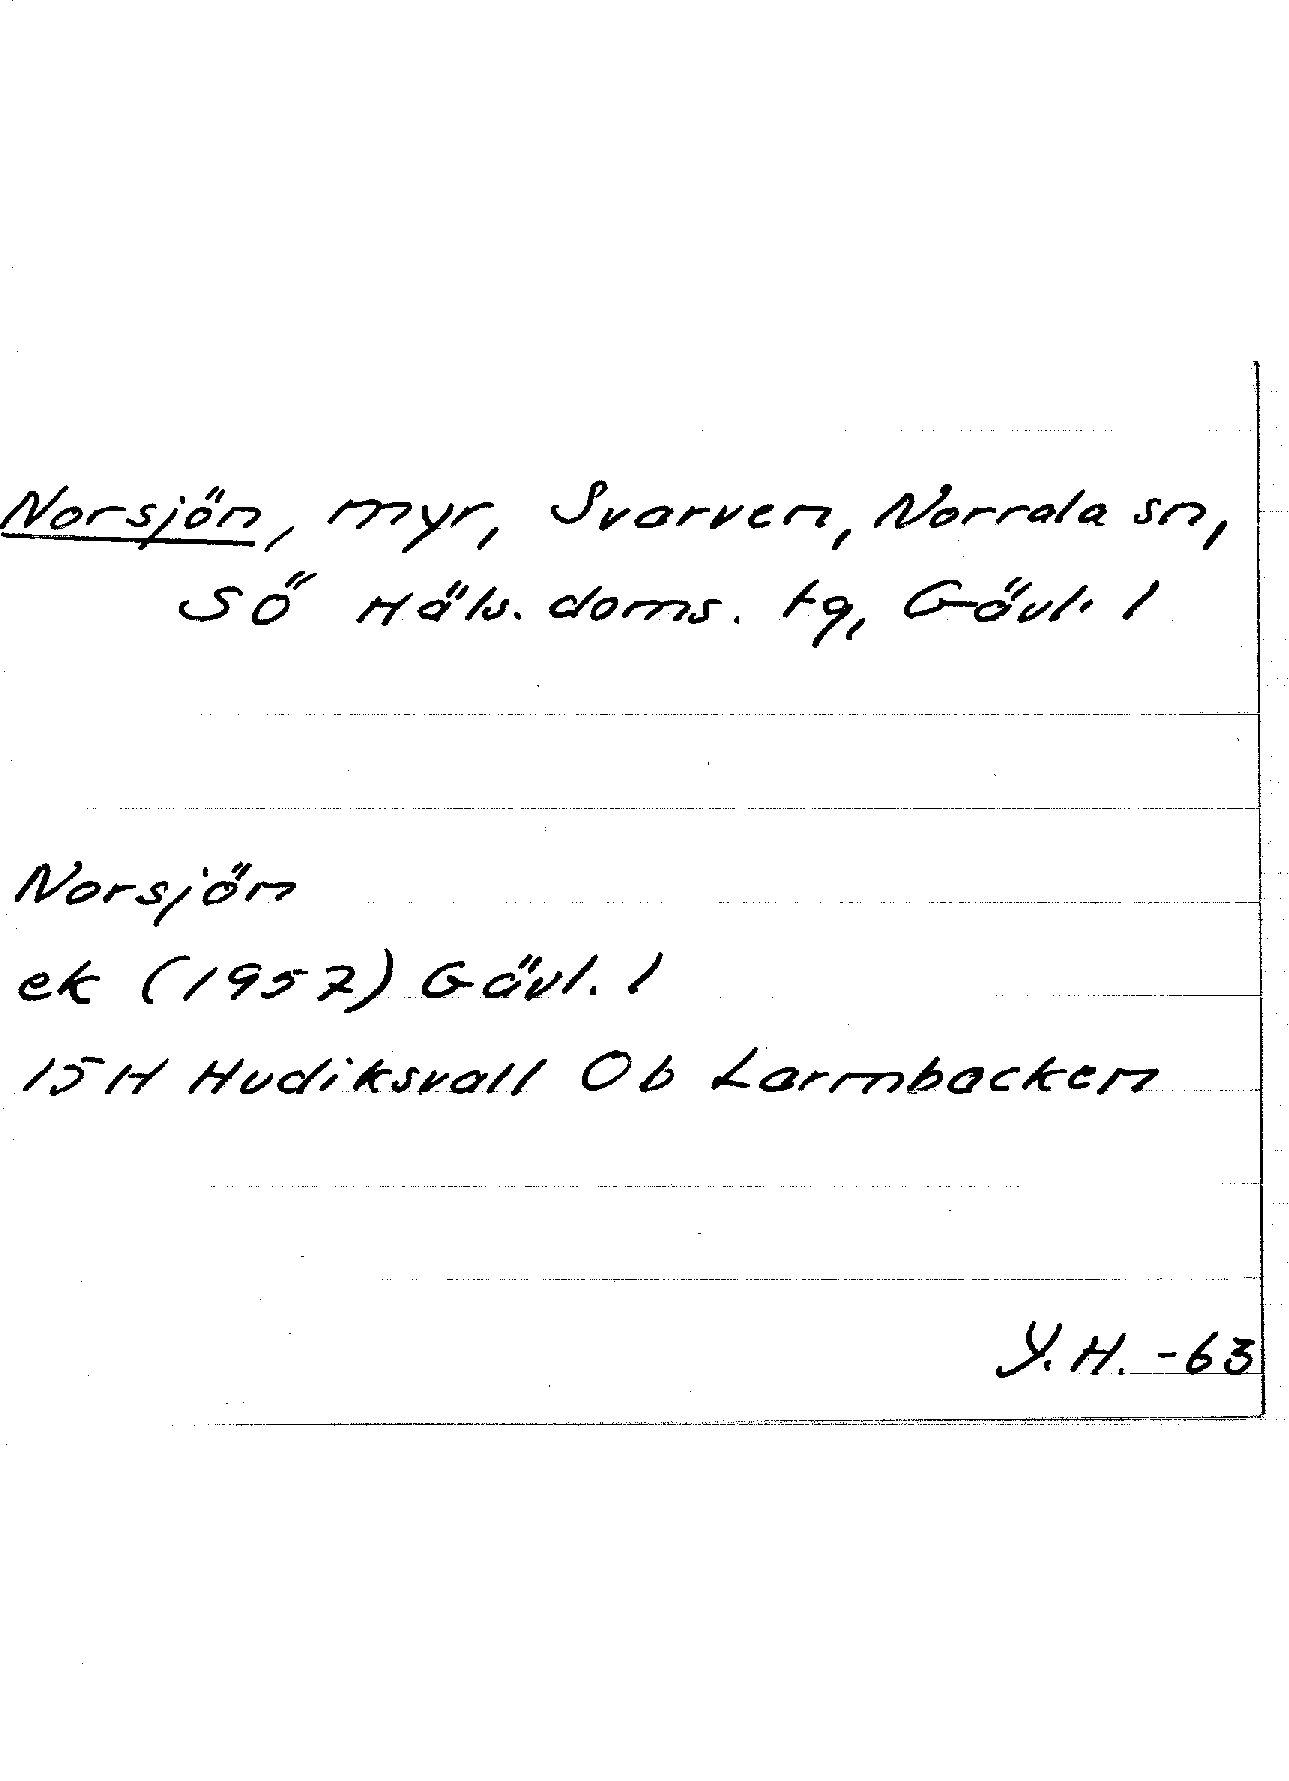 Norsjön, myr, Svarven, Norrala sn,
SÖ Häls. doms. tg, Gävl. l
Norsjön
ek (1957) Gävl. l
15H Hudiksvall Ob Larmbacken
Y.H. -63